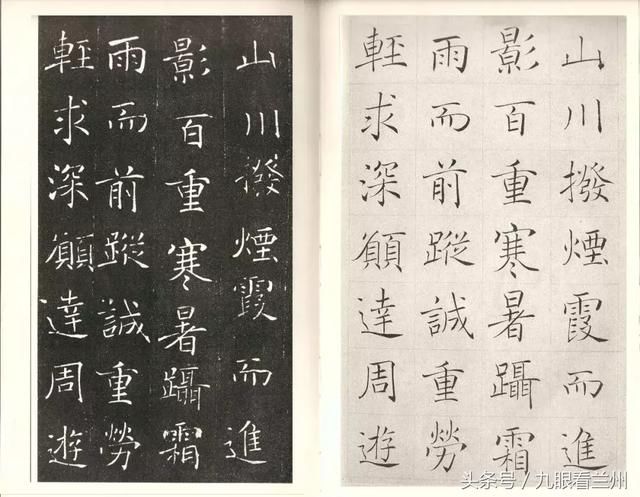 山川撥煙霞而進
影百重寒暑躡霜
雨而前蹤誠重勞
輕求深願達周遊
山川撥煙霞而進
影百重寒暑躡霜
雨而前蹤誠重勞
輕求深願達周遊
头条号 / 九眼看兰州